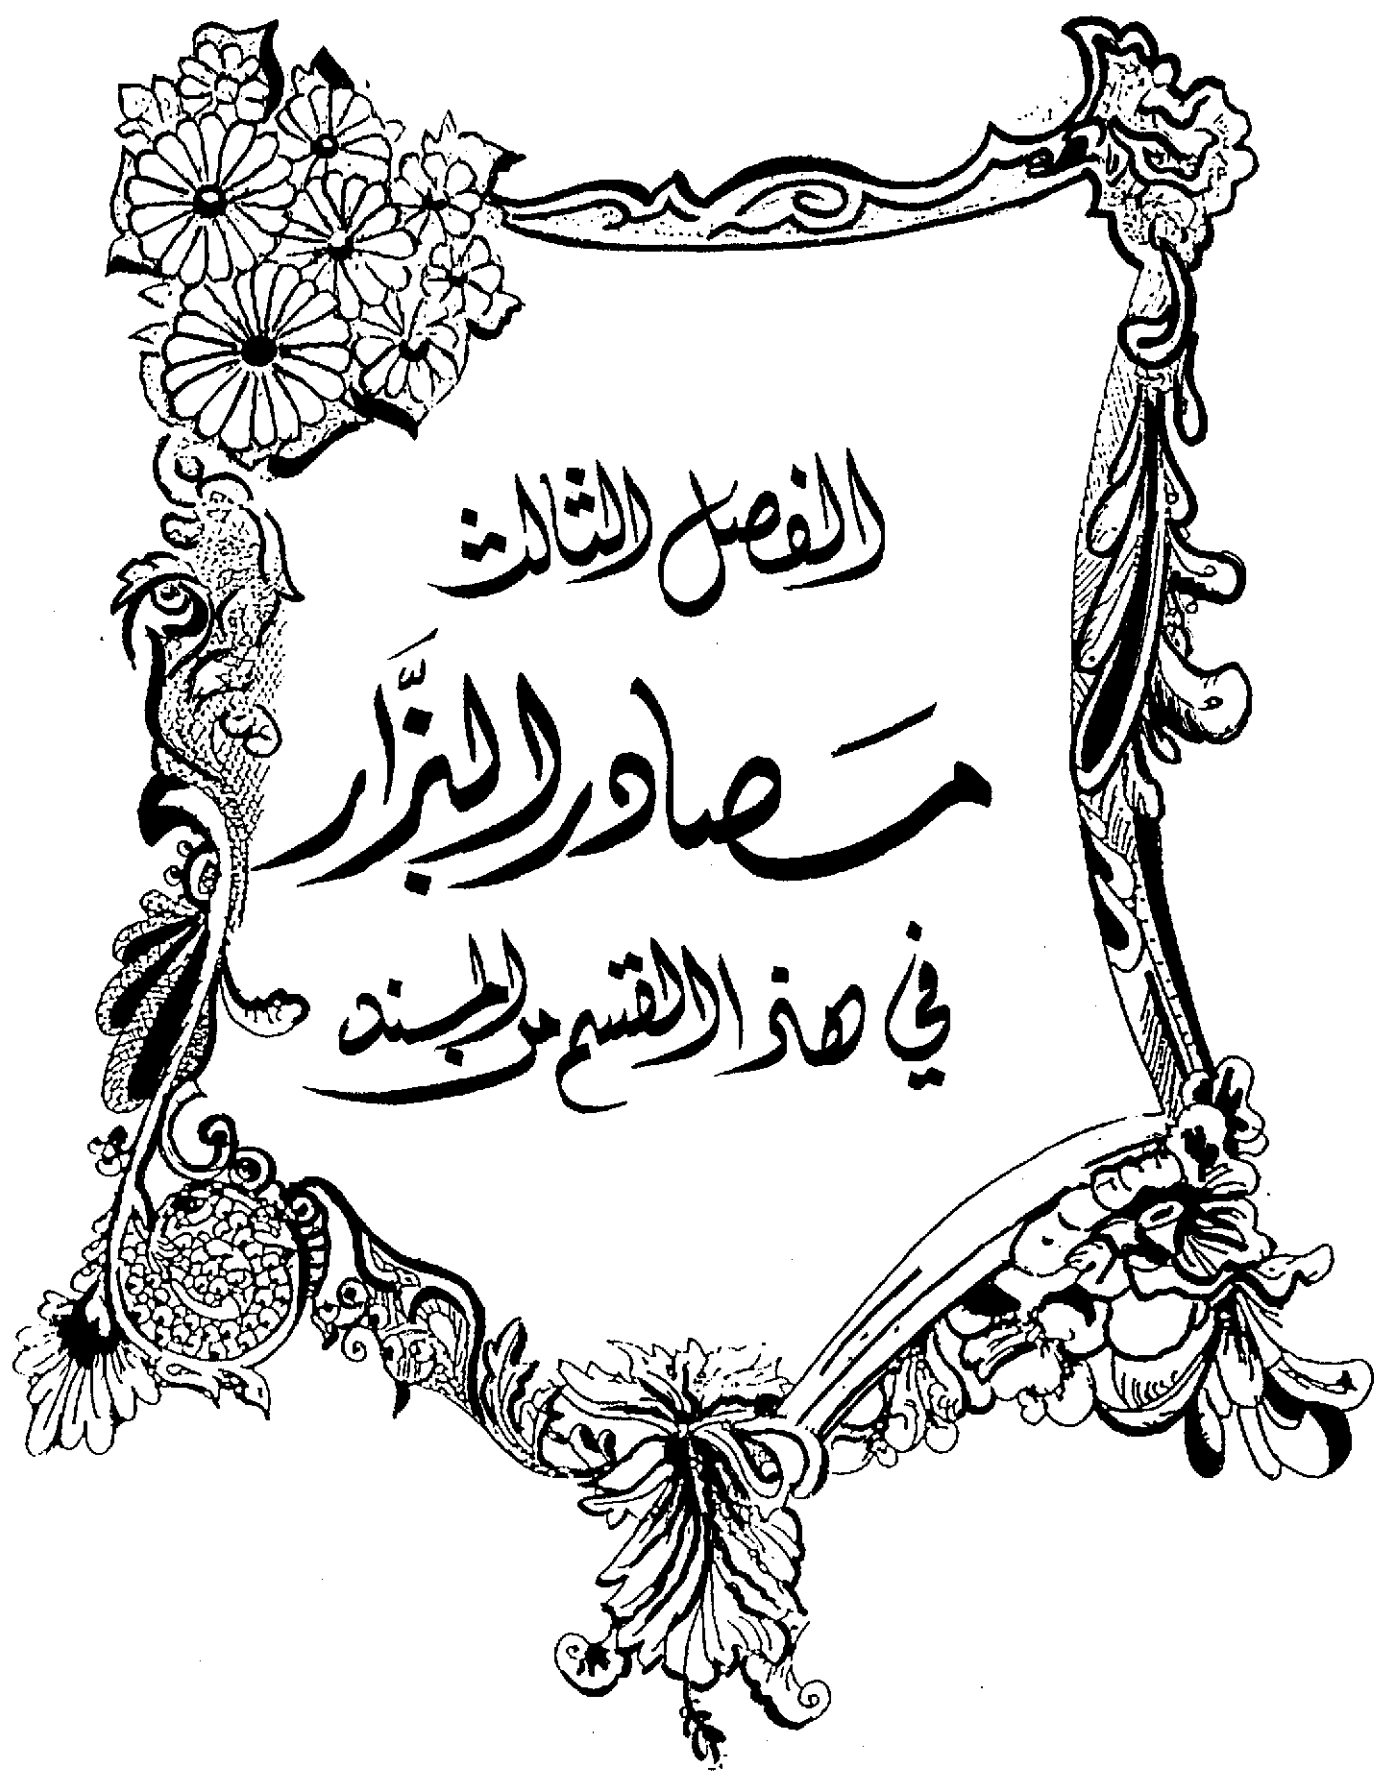 الفصل الثالث
مصادر البزَّار
في هذا القسم من المسند